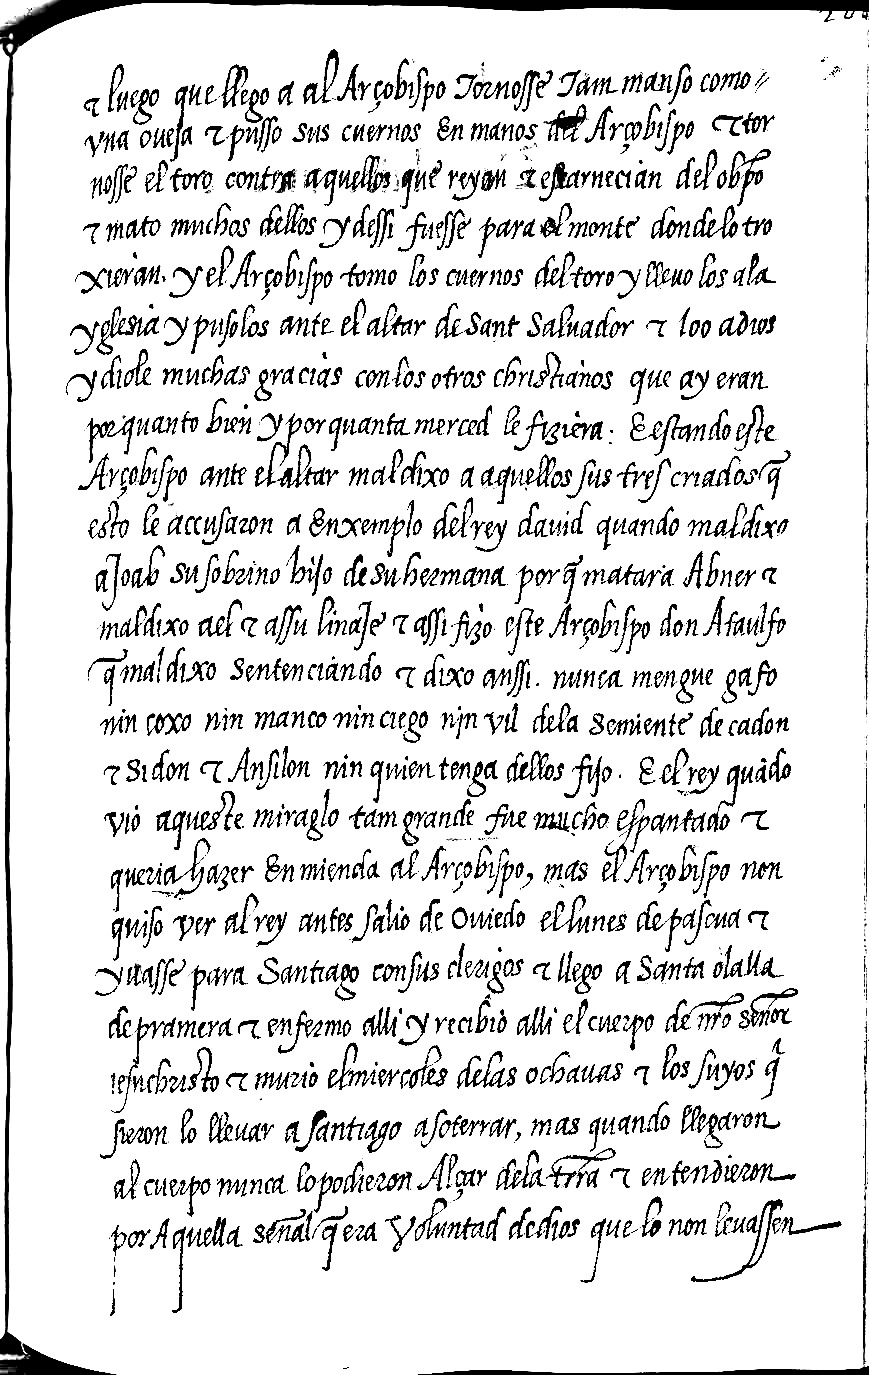 ⁊ luego que llego a al Arçobispo Tornosse Tam manso como
vna oueja ⁊ pusso sus cuernos En manos del Arçobispo ⁊ tor
nosse el toro contra aquellos que reyan ⁊ escarnecian del obp̃o
⁊ mato muchos dellos y dessi fuesse para el monte donde lo tro
xieran. y el Arçobispo tomo los cuernos del toro y lleuo los ala
yglesia y pusolos ante el altar de Sant Saluador ⁊ loo adios
y diole muchas gracias con los otros christianos que ay eran
por quanto bien y por quanta merced le fiziera: E estando este
Arçobispo ante el altar maldixo a aquellos sus tres criados q̃
esto le accusaron a Enxemplo del rey david quando maldixo
a Joab su sobrino hijo de su hermana por q̃ matara Abner ⁊
maldixo ael ⁊ assu linaje ⁊ assi fizo este Arçobispo don Ataulfo
q̃ maldixo Sentenciando ⁊ dixo anssi. nunca mengue gafo
nin coxo nin manco nin ciego nin vil dela Semiente de cadon
⁊ Sidon ⁊ Ansilon nin quien tenga dellos fijo. E el rey quãdo
vio aqueste miraglo tam grande fue mucho espantado ⁊
queria hazer Enmienda al Arçobispo, mas el Arçobispo non
quiso ver al rey antes salio de Ouiedo el lunes de pascua ⁊
yuasse para Santiago con sus clerigos ⁊ llego a Santa olalla
de pramera ⁊ enfermo alli y recibio alli el cuerpo de nr̃o señor
iesuchristo ⁊ murio el miercoles delas ochauas ⁊ los suyos q̃
sieron lo lleuar a Santiago a soterrar, mas quando llegaron
al cuerpo nunca lo podieron Alçar dela trr̃a ⁊ entendieron
por Aquella señal q̃ era Voluntad de dios que lo non leuassen